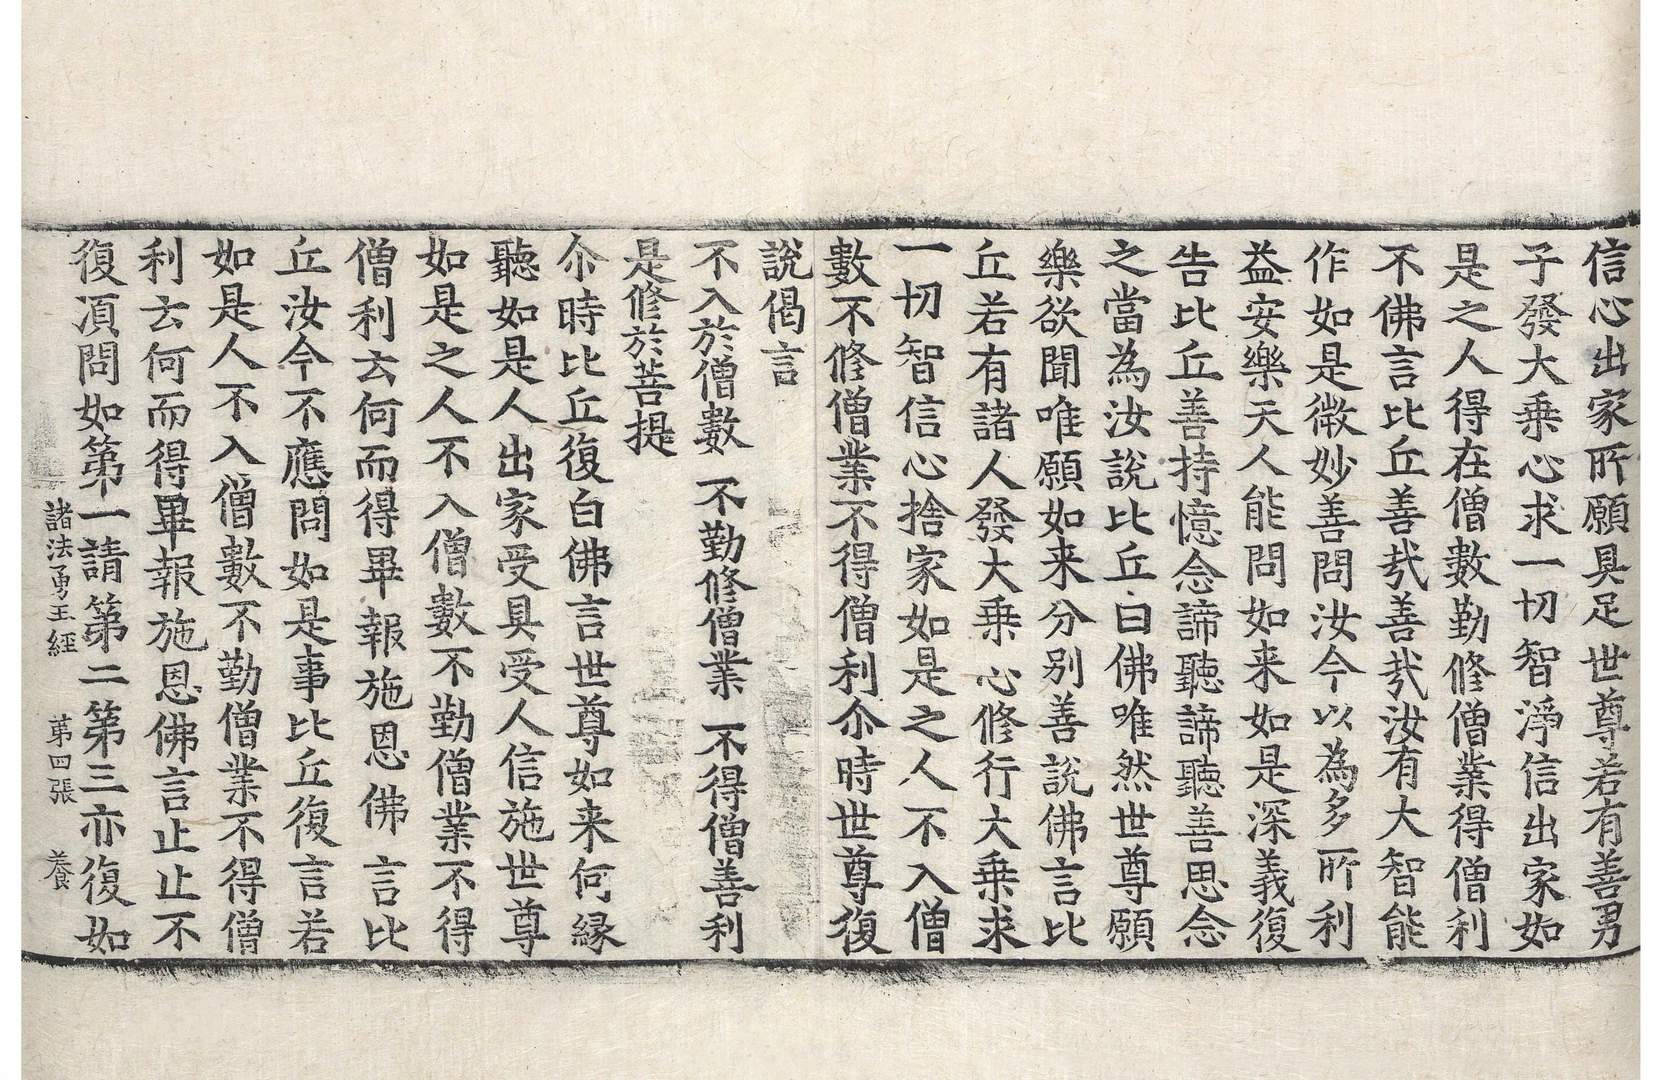 信心出家所願具足世尊若有善男
子發大乘心求一切智淨信出家如
是之人得在僧數勤修僧業得僧利
不佛言比丘善㢤善㢤汝有大智能
作如是微妙善問汝今以為多所利
益安樂天人能問如来如是深義復
告比丘善持憶念諦聽諦聽善思念
之當為汝說比丘白佛唯然世尊願
樂欲聞唯願如来分別善說佛言比
丘若有諸人發大乘心修行大乘求
一切智信心捨家如是之人不入僧
數不修僧業不得僧利尒時世尊復
說偈言
不入於僧數　不勤修僧業　不得僧善利
是修於菩提
尒時比丘復白佛言世尊如来何緣
聽如是人出家受具受人信施世尊
如是之人不入僧數不勤僧業不得
僧利云何而得畢報施恩佛言比
丘汝今不應問如是事比丘復言若
如是人不入僧數不勤僧業不得僧
利云何而得畢報施恩佛言止止不
復湏問如第一請第二第三亦復如
諸法勇王經　第四張　養